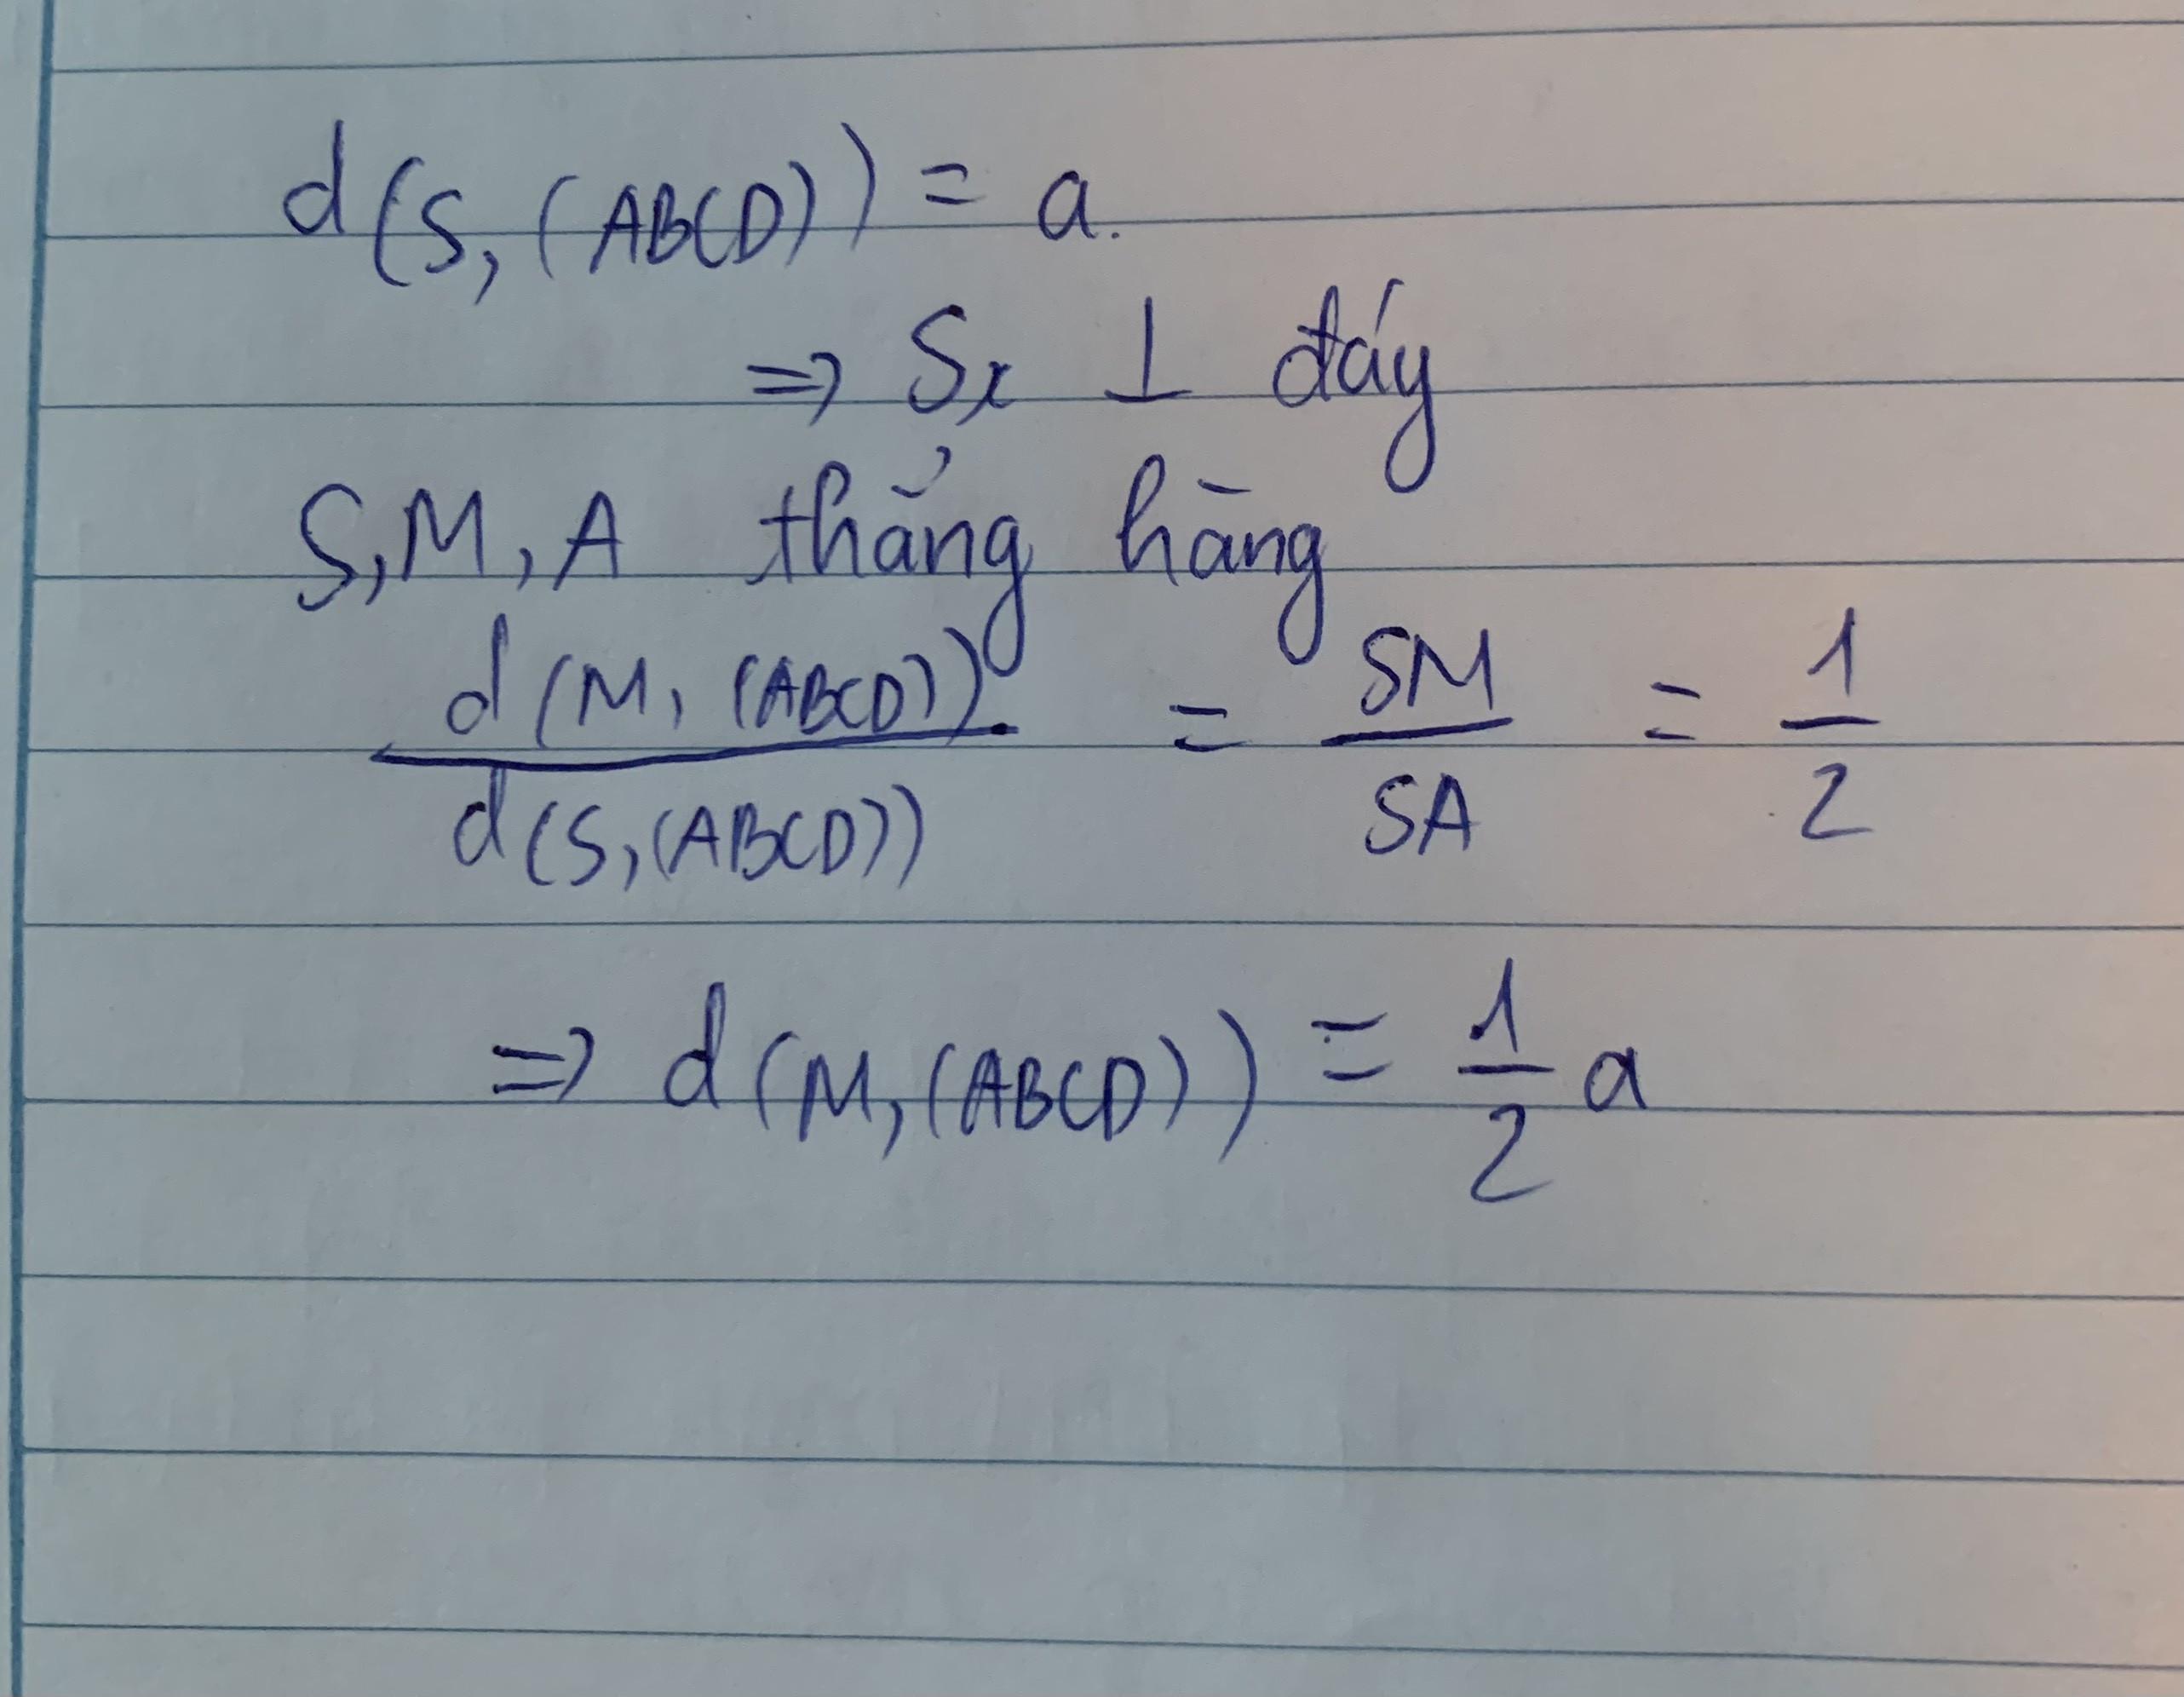 d(S, (ABCD)) = a.
=> Sx ⊥ đáy
S, M, A thẳng hàng
d(M, (ABCD)) / d(S, (ABCD)) = SM / SA = 1 / 2
=> d(M, (ABCD)) = 1/2 a